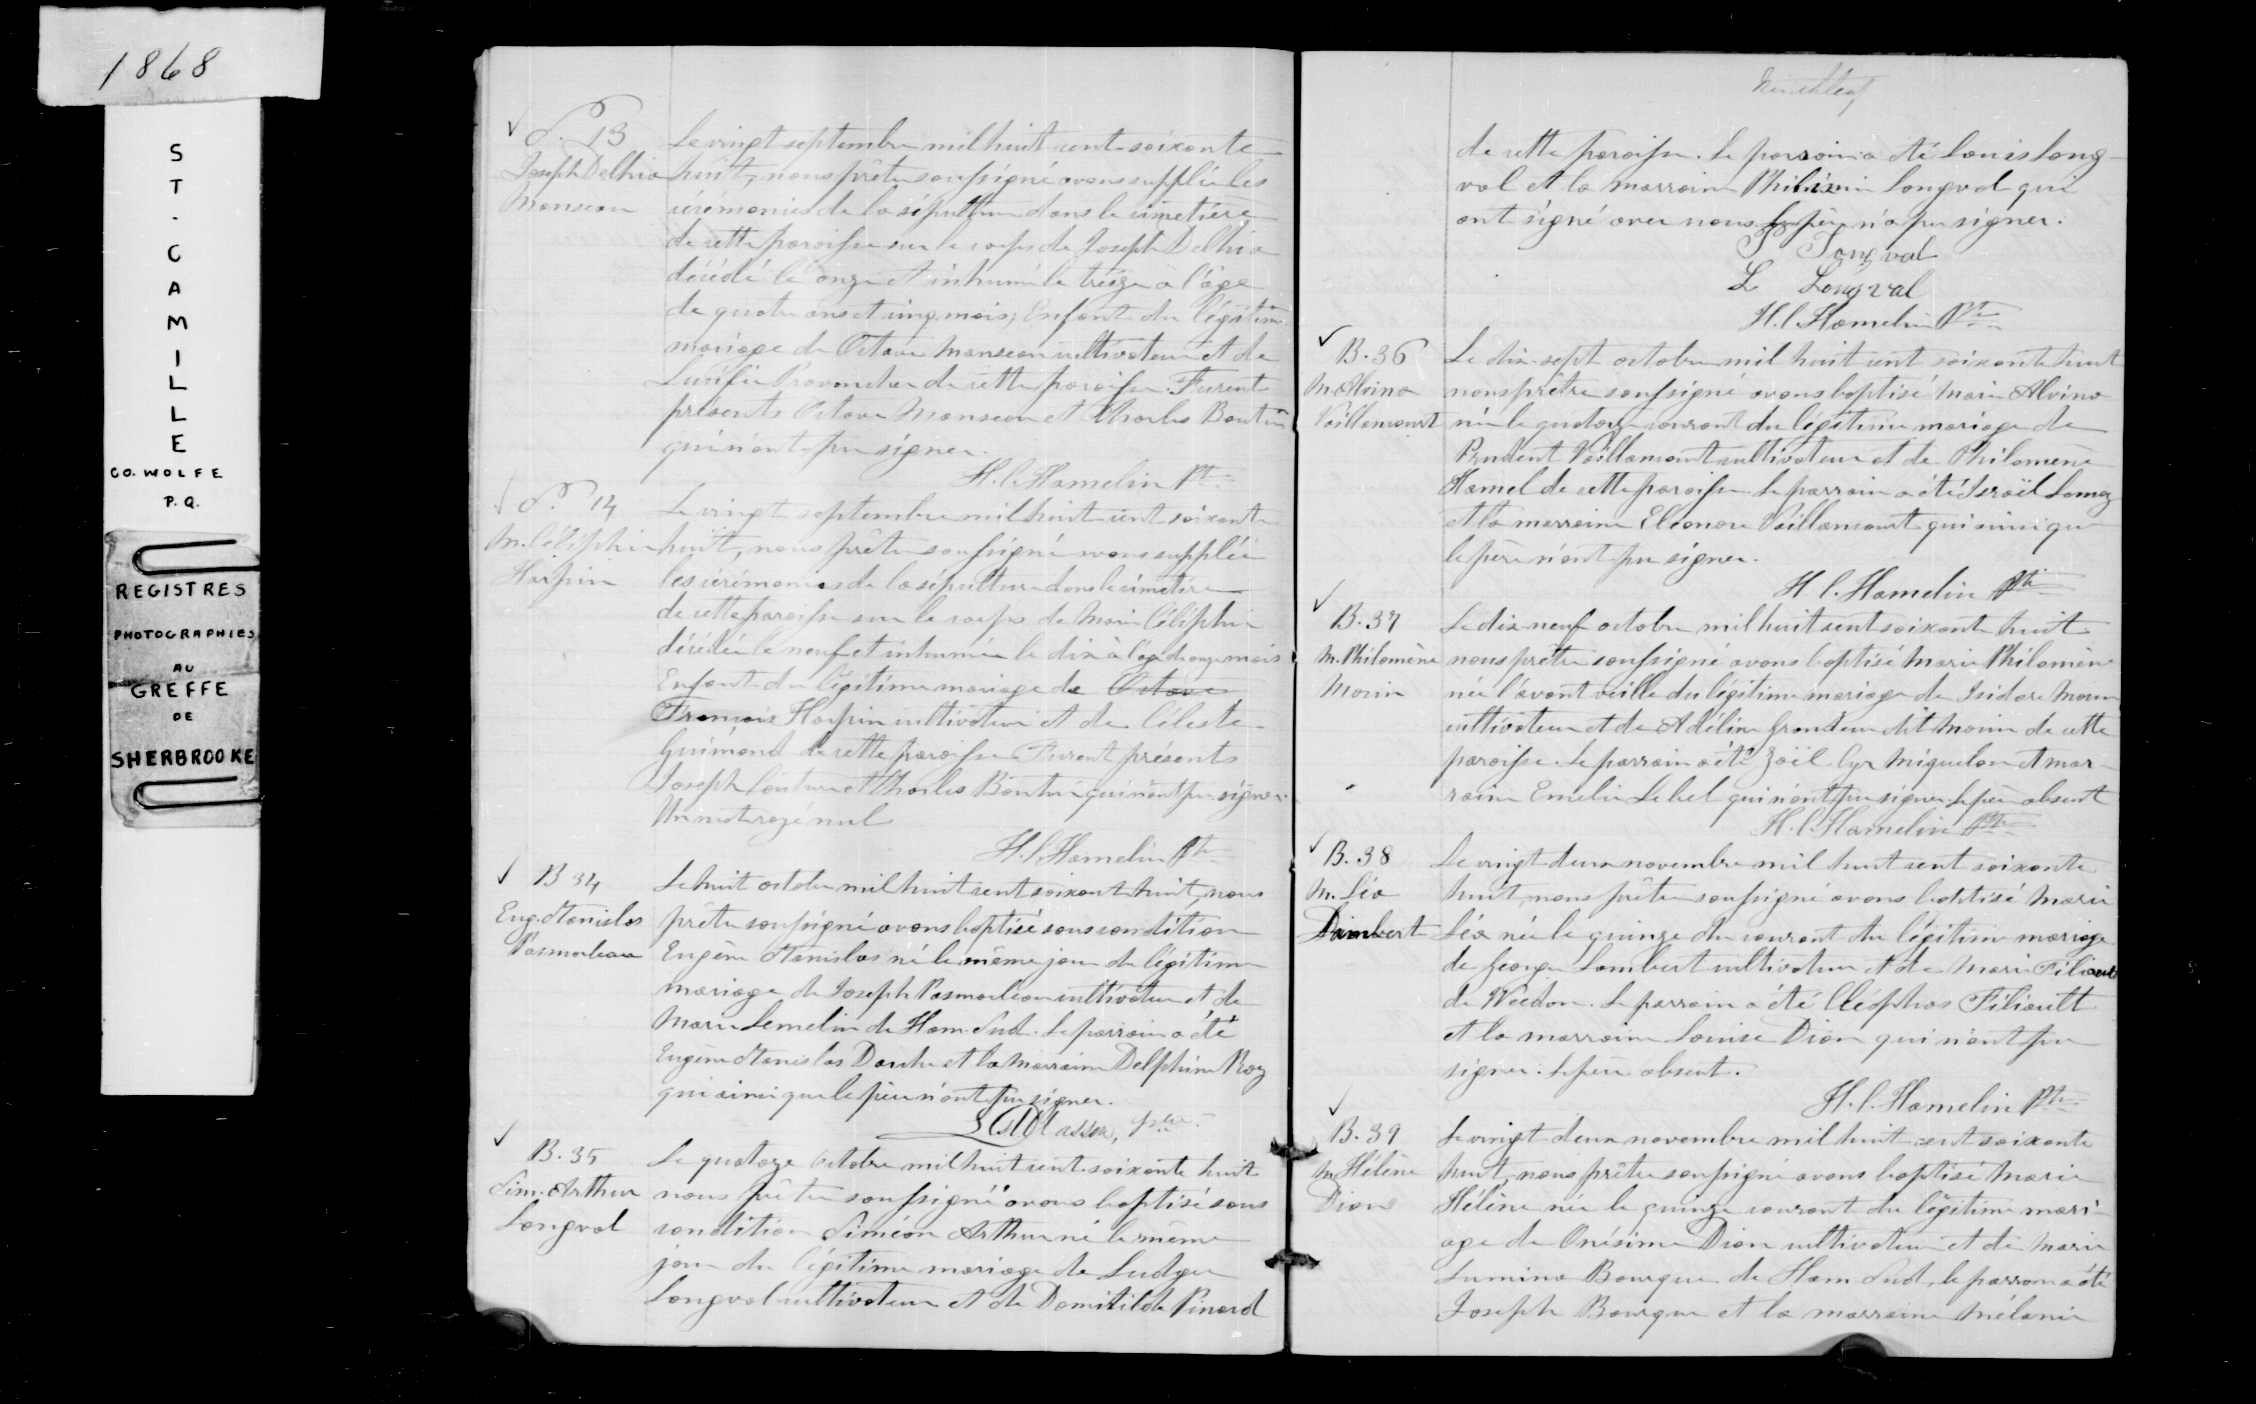 1868
ST. CAMILLE
CO. WOLFE
P.Q.
REGISTRES
PHOTOGRAPHIES
AU
GREFFE
DE
SHERBROOKE
S. 13
Joseph Delhia
Manseau
Le vingt septembre mil huit cent soixante
huit, nous prêtre soussigné avons suppléé les
cérémonies de la sépulture dans le cimetière
de cette paroisse sur le corps de Joseph Delhia
décédé le onze et inhumé le treize à l'âge
de quatre ans et cinq mois, Enfant du légitime
mariage de Octave Manseau cultivateur et de
Provencher de cette paroisse. Furent
présents Octave Manseau et Charles Boutin
qui n'ont pu signer.
H. C. Hamelin Ptre
S. 14
M. Céliphie
Harpin
Le vingt septembre mil huit cent soixante
huit, nous prêtre soussigné avons suppléé
les cérémonies de la sépulture dans le cimetière
de cette paroisse sur le corps de Marie Céliphie
décédée le neuf et inhumée le dix à l'âge de onze mois
Enfant du légitime mariage de Octave
François Harpin cultivateur et de Céleste
Guimond de cette paroisse Furent présents
Joseph Couture et Charles Boutin qui n'ont pu signer.
Un mot rayé nul
H. C. Hamelin Ptre
B 34
Eug. Stanislas
Pasmorleau
Le huit octobre mil huit cent soixante huit, nous
prêtre soussigné avons baptisé sous condition
Eugène Stanislas né le même jour du légitime
mariage de Joseph Pasmorleau cultivateur et de
Marie Lemelin de Ham-Sud. Le parrain a été
Eugène Stanislas Darche et la marraine Delphine Roy
qui ainsi que le père n'ont pu signer.
Masson, ptre
B. 35
Sim. Arthur
Longval
Le quatorze Octobre mil huit cent soixante huit
nous prêtre soussigné avons baptisé sous
condition Siméon Arthur né le même
jour du légitime mariage de Ludger
Longval cultivateur et de Domitilde Pinard
de cette paroisse. Le parrain a été Louis Long
val et la marraine Philémie Longval qui
ont signé avec nous. Le père n'a pu signer.
P Longval
L Longval
H. C. Hamelin Ptre
B. 36
M. Alvina
Vaillancourt
Le dix-sept octobre mil huit cent soixante huit
nous prêtre soussigné avons baptisé Marie Alvina
née le quatorze courant du légitime mariage de
Prudent Vaillancourt cultivateur et de Philomène
Hamel de cette paroisse. Le parrain a été Israël Lemay
et la marraine Eléonore Vaillancourt qui ainsi que
le père n'ont pu signer.
H. C. Hamelin Ptre
B. 37
M. Philomène
Morin
Le dix-neuf octobre mil huit cent soixante huit
nous prêtre soussigné avons baptisé Marie Philomène
née l'avant veille du légitime mariage de Isidore Morin
cultivateur et de Adéline Grondine dit Morin de cette
paroisse. Le parrain a été Zoël Cyr Miquelon et mar-
raine Emelie Lebel qui n'ont pu signer. Le père absent
H. C. Hamelin Ptre
B. 38
M. Léa
Lambert
Le vingt deux novembre mil huit cent soixante
huit, nous prêtre soussigné avons baptisé Marie
Léa née le quinze du courant du légitime mariage
de George Lambert cultivateur et de Marie Filiault
de Weedon. Le parrain a été Cléophas Filiault
et la marraine Louise Dion qui n'ont pu
signer. Le père absent.
H. C. Hamelin Ptre
B. 39
M. Hélène
Dion
Le vingt deux novembre mil huit cent soixante
huit, nous prêtre soussigné avons baptisé Marie
Hélène née le quinze courant du légitime mari-
age de Onésime Dion cultivateur et de Marie
Lumina Bourque de Ham Sud, le parrain a été
Joseph Bourque et la marraine Mélanie